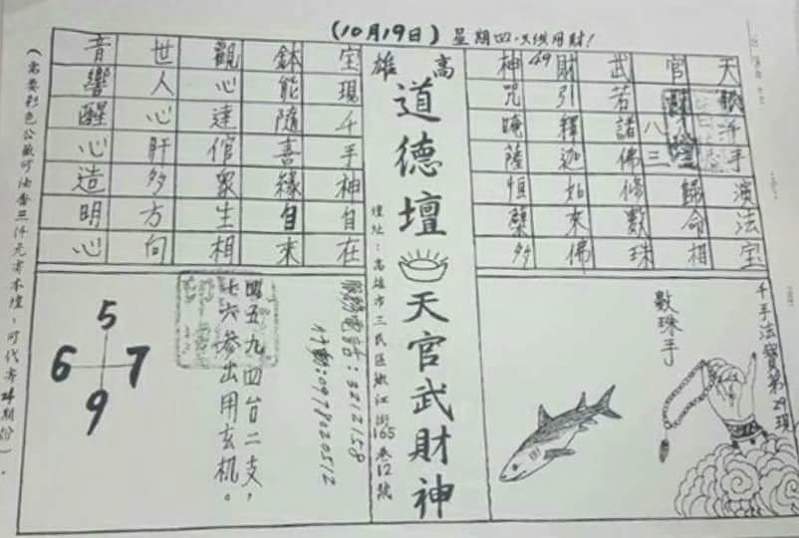 (10月19日) 星期四只供用財!
天手演法宝
官歸命相
武若諸佛修數珠
財引釋迦如來佛
神咒唵薩恒多
49
八三
高雄
道德壇
天官武財神
壇址：高雄市三民區嫩江街165巷12號
宝現千手神自在
鉢能隨喜緣自來
觀心達倌眾生相
世人心肝多方向
音響醒心造明心
千手法寶第29項
數珠手
服務電話:3212158
行動:0978020512
四五九四台二支，
七六參出用玄机。
5
6 7
9
(需要彩色公三仟元寄本壇，可代寄期份)。